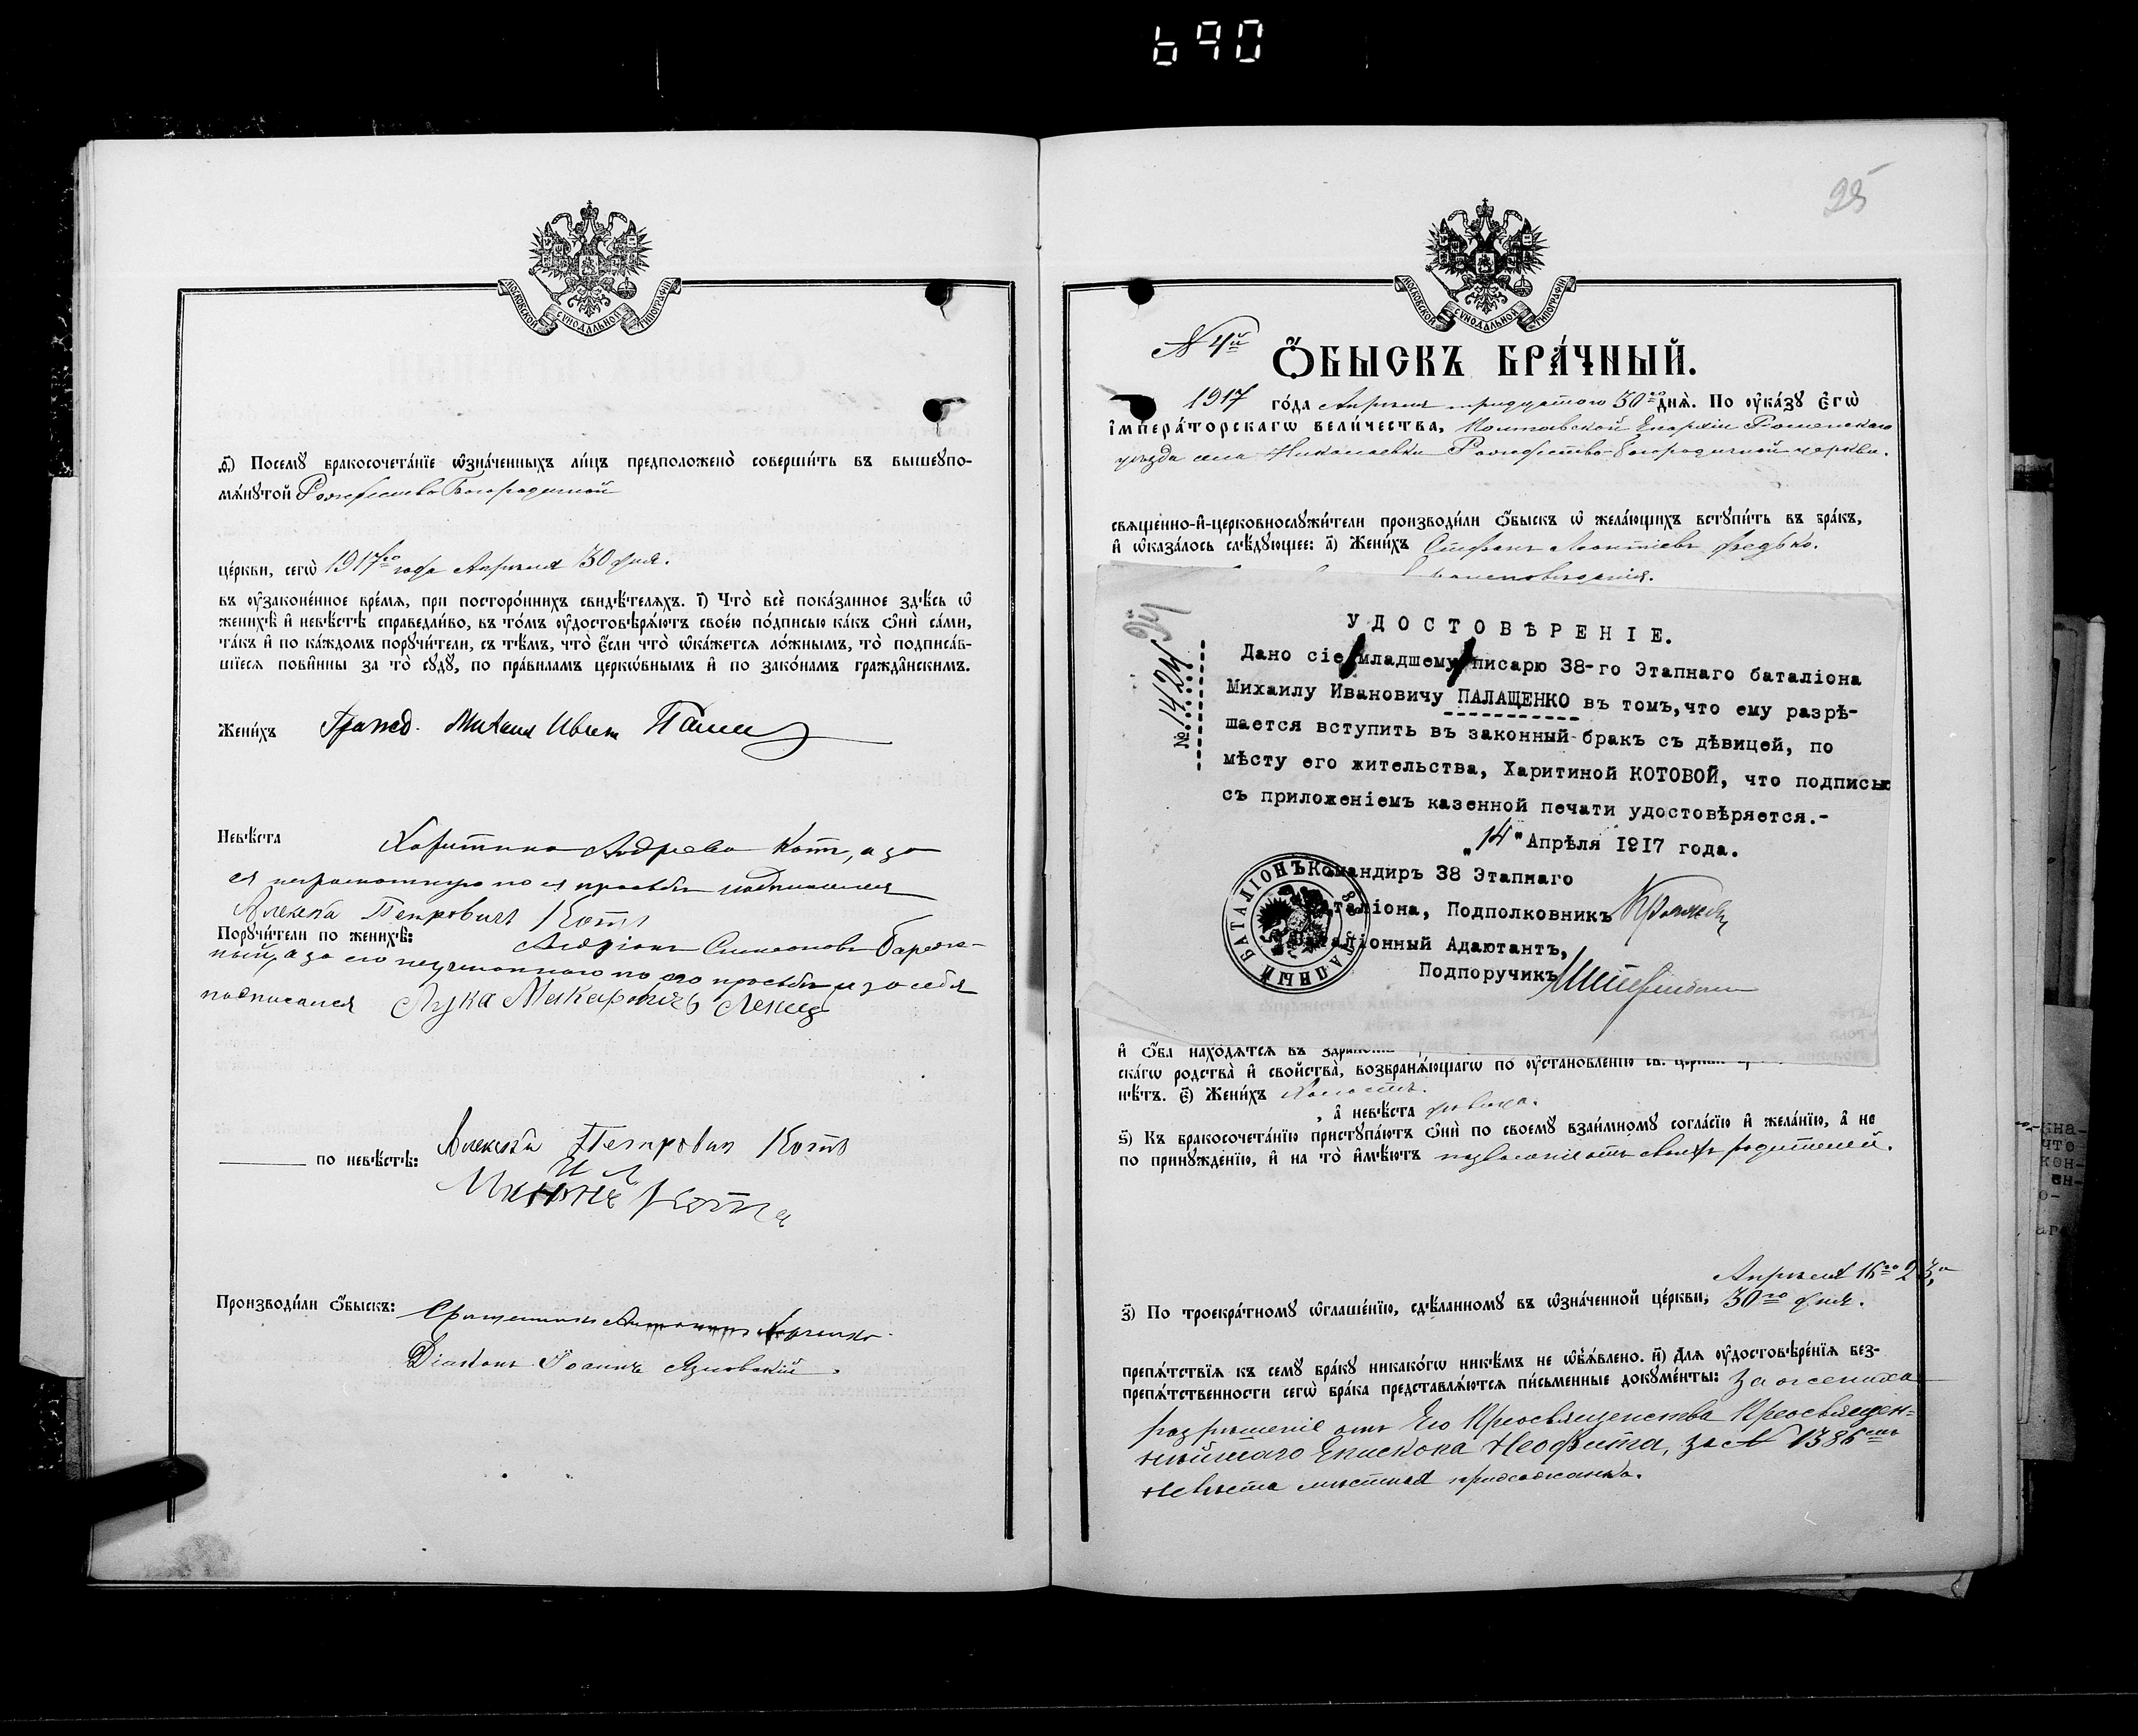 690
МОСКОВСКОЙ СѴНОДАЛЬНОЙ ТИПОГРАФІИ
д҃) Посемꙋ̀ бракосочета́нїе ѡ҆зна́ченныхъ ли́цъ предположено̀ соверши́ть въ вышеꙋпо-
мѧ́нꙋтой Рождество Богородичной
це́ркви, сегѡ̀ 1917го года Апрѣля 30 дня.
въ ᲂу҆зако́ненное вре́мѧ, при посторо́ннихъ свидѣ́телѧхъ. і҃) Что̀ всѐ пока́занное здѣ́сь ѡ҆
женихѣ̀ и҆ невѣ́стѣ справедли́во, въ то́мъ ᲂу҆достовѣрѧ́ютъ свое́ю по́дписью ка́къ ѻ҆нѝ са́ми,
та́къ и҆ по ка́ждомъ порꙋчи́тели, съ тѣ́мъ, что̀ є҆́сли что̀ ѡ҆ка́жетсѧ ло́жнымъ, то̀ подписа́в-
шїесѧ пови́нны за то̀ сꙋдꙋ̀, по пра́виламъ церко́внымъ и҆ по зако́намъ гражда́нскимъ.
Жени́хъ Гражд. Михаил Иванъ
Невѣ́ста Харитина Андреева Котъ, а за
ея неграмотную по ея просьбѣ подписался
Алексѣй Петровичъ Котъ
Порꙋчи́тели по женихѣ̀: Андріанъ Симеоновъ
а за его неграмотнаго по его просьбѣ и за себя
подписался Лука Макаровичъ
по невѣ́стѣ: Алексѣй Петровичъ Котъ
Котъ
Производи́ли ѻ҆́быскъ: Священникъ
Діаконъ Іоаннъ Язновскій.
25
МОСКОВСКОЙ СѴНОДАЛЬНОЙ ТИПОГРАФІИ
N 4й
Ѻ҆́БЫСКЪ БРА́ЧНЫЙ.
1917 го́да Апрѣля тридцатого 30го днѧ̀. По ᲂу҆ка́зꙋ Є҆гѡ̀
І҆мпера́торскагѡ вели́чества, Полтавской Епархіи Роменскаго
уѣзда села Николаевки Рождество-Богородичной церкви.
свѧще́нно-и҆-церковнослꙋжи́тели производи́ли ѻ҆́быскъ ѡ҆ жела́ющихъ встꙋпи́ть въ бра́къ,
и҆ ѡ҆каза́лось слѣ́дꙋющее: а҃) Жени́хъ Стефанъ Леонтіевъ Федько.
УДОСТОВѢРЕНІЕ.
№ 1424
Дано сіе младшему писарю 38-го Этапнаго баталіона
Михаилу Ивановичу ПАЛАЩЕНКО въ томъ,что ему разрѣ-
шается вступить въ законный бракъ съ дѣвицей, по
мѣсту его жительства, Харитиной КОТОВОЙ, что подписью
съ приложеніемъ казенной печати удостовѣряется.-
"14" Апрѣля 1917 года.
Командиръ 38 Этапнаго
баталіона, Подполковникъ
Баталіонный Адаютантъ,
Подпоручикъ
38 ЭТАПНЫЙ БАТАЛІОНЪ
и҆ ѻ҆́ба нахо́дѧтсѧ въ
скагѡ родства̀ и҆ свойства̀, возбранѧ́ющагѡ по ᲂу҆становле́нїю св.
нѣ́тъ. є҃) Жени́хъ Холостъ.
, а҆ невѣ́ста дѣвица.
ѕ҃) Къ бракосочета́нїю пристꙋпа́ютъ ѻ҆нѝ по своемꙋ̀ взаи́мномꙋ согла́сїю и҆ жела́нїю, а҆ не
по принꙋжде́нїю, и҆ на то̀ и҆мѣ́ютъ позволеніе отъ своихъ родителей.
Апрѣля 16го 23,
з҃) По троекра́тномꙋ ѡ҆глаше́нїю, сдѣ́ланномꙋ въ ѡ҆зна́ченной це́ркви, 30го дня.
препѧ́тствїѧ къ семꙋ̀ бра́кꙋ никако́гѡ никѣ́мъ не ѡ҆б̾ѧ́влено. и҃) Длѧ ᲂу҆достовѣре́нїѧ без-
препѧ́тственности сегѡ̀ бра́ка представлѧ́ютсѧ пи́сьменные докꙋме́нты: За жениха
разрѣшеніе отъ Его Преосвященства Преосвящен-
нѣйшаго Епископа Неофита, за N 1386мъ
Невѣста мѣстная прихожанка.